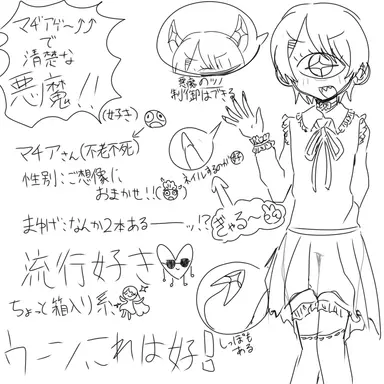 マヂアゲ〜↑↑
で
清楚な
悪魔!!
(好き)
マチアさん(不老不死)
性別:ご想像に、
おまかせ!!
まゆげ:なんか2本あるーーッ!?
流行好き
ちょっと箱入り系
ウーンこれは好!
悪魔のツノ
制御はできる
ネイルするのが好
ぎゃる〜
しっぽも
ある